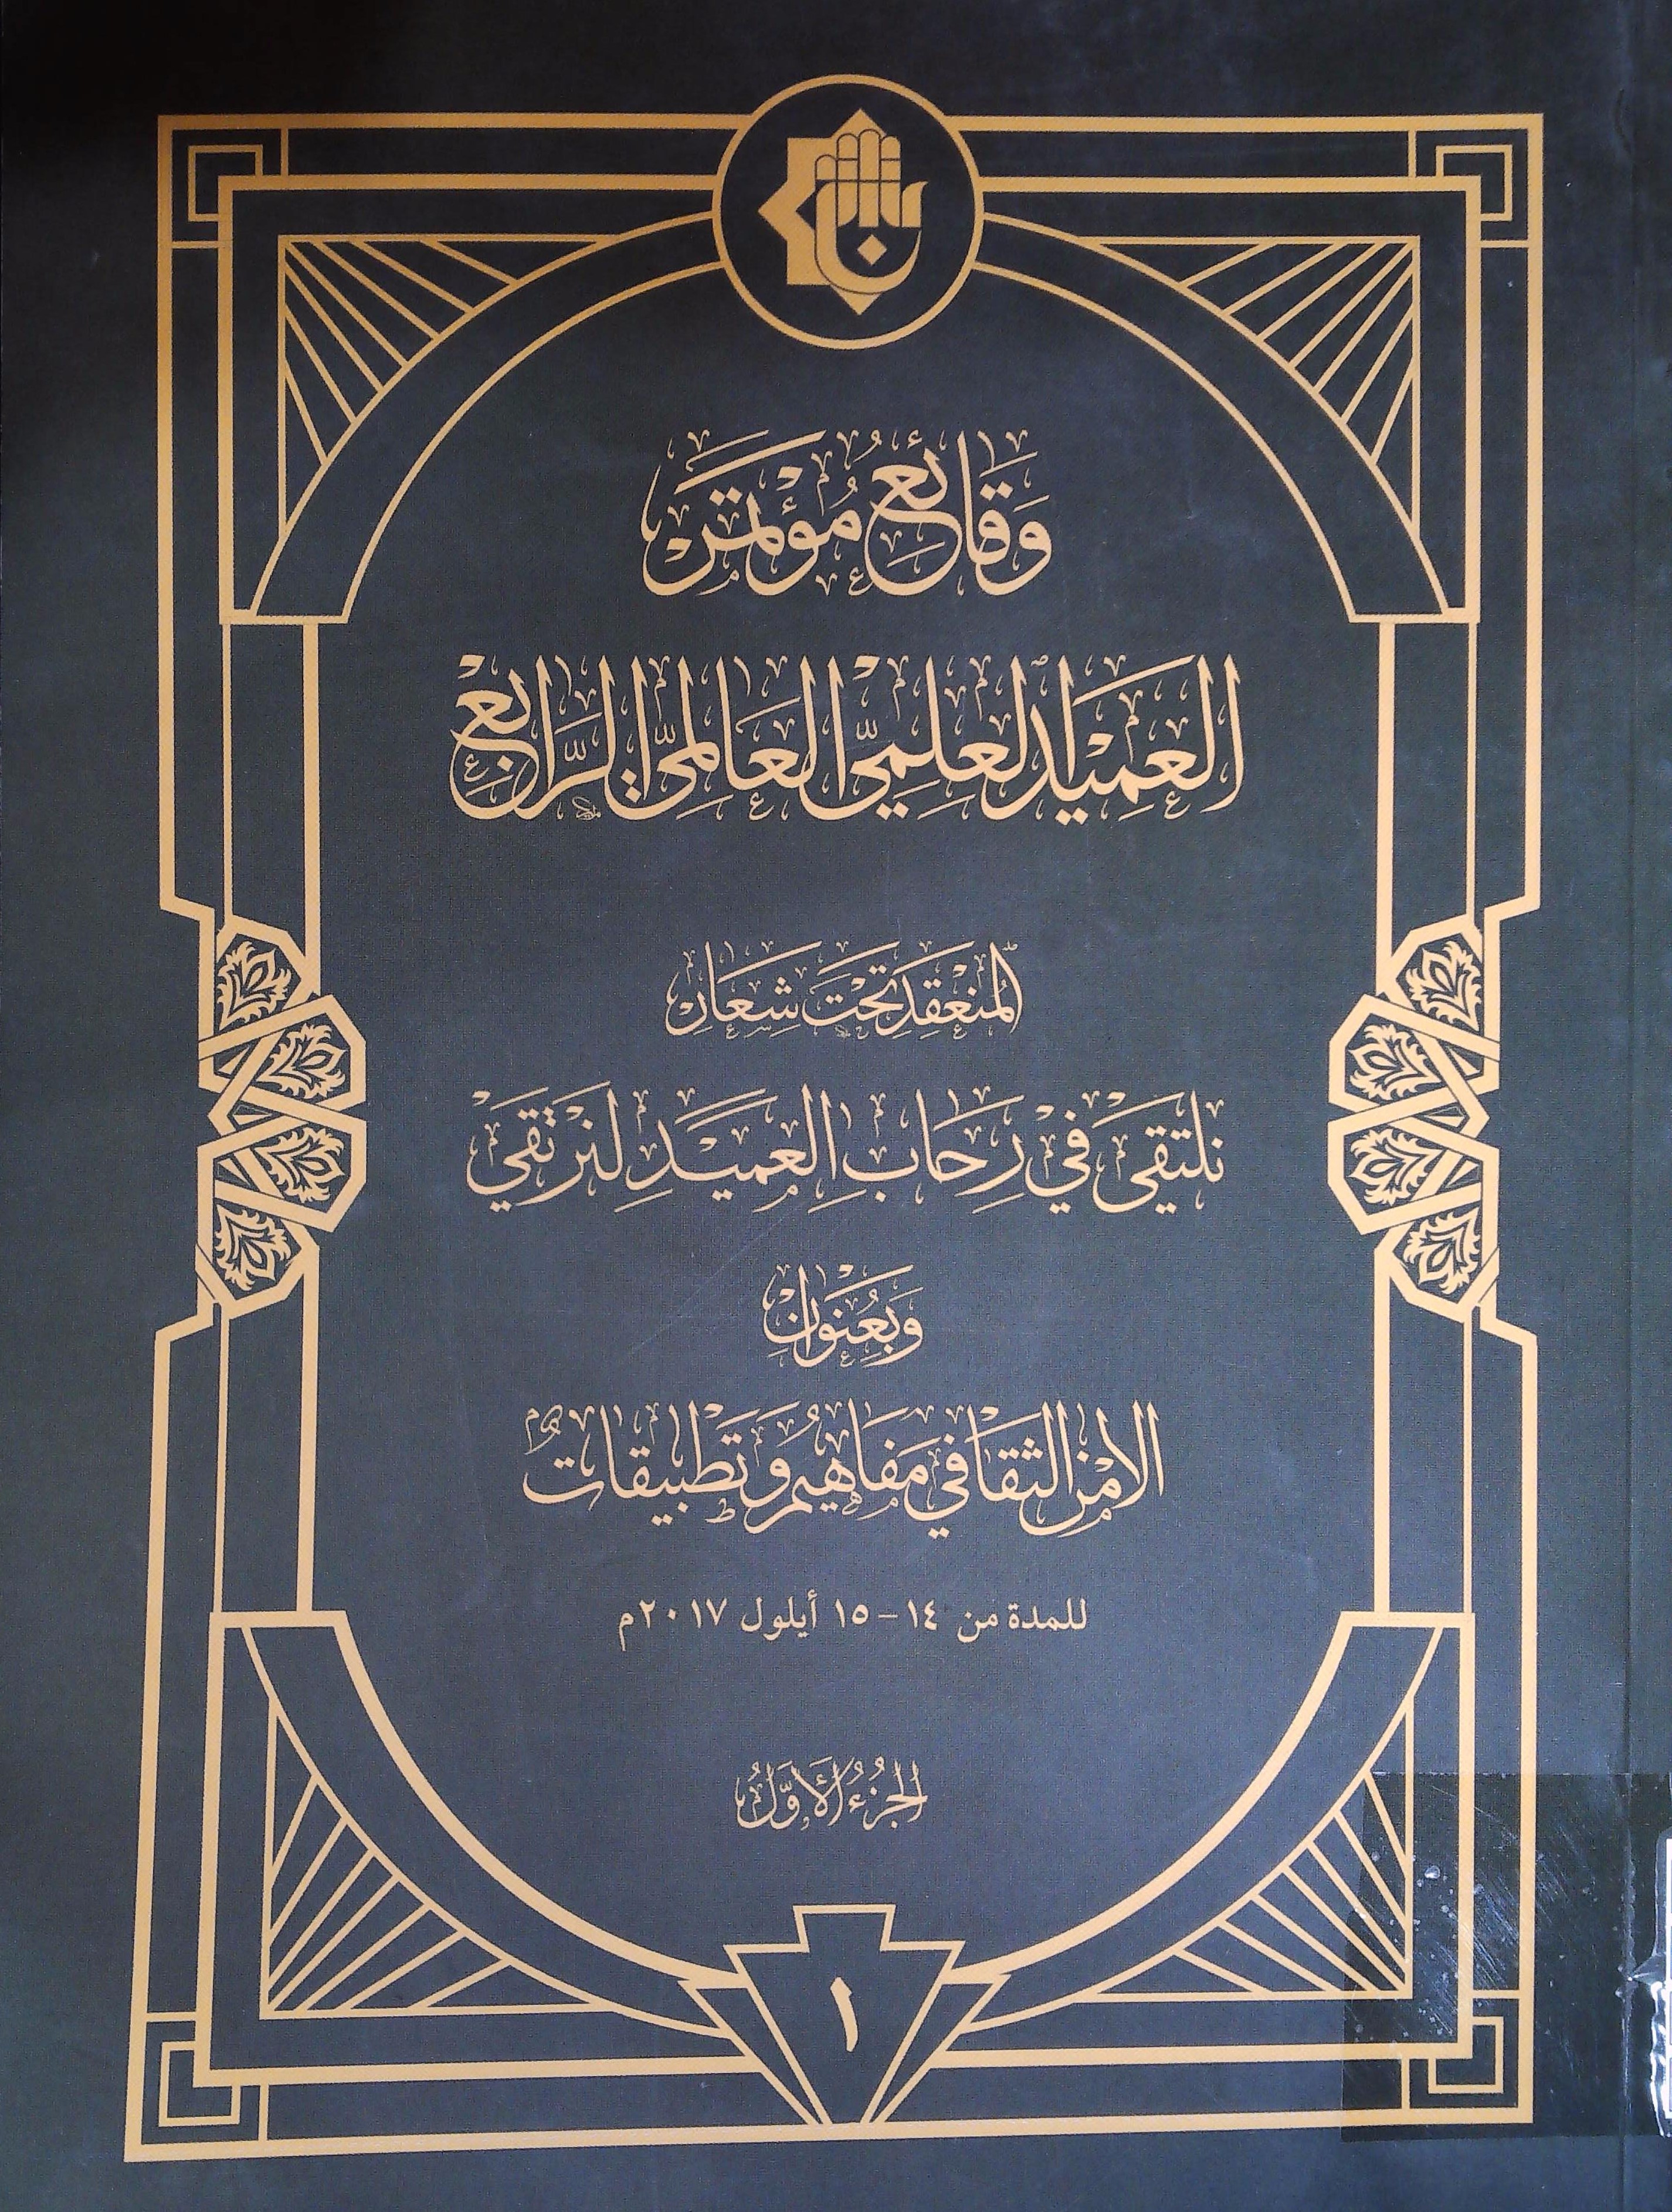 وَقَائِعُ مُؤْتَمَرِ
العَمِيْدِ العِلْمِيِّ العَالَمِيِّ الرَّابِعْ
المُنْعَقِد تَحْتَ شِعَارْ
نَلتَقِيْ فِيْ رِحَابِ العَمِيَدِ لِنَرْتَقِيْ
وَبِعُنْوَانْ
الامْن الثَقَافي مَفَاهيمُ وَتَطْبيقاتٌ
للمدة من ١٤ – ١٥ أيلول ٢٠١٧م
الجُزْءُ الأَوَّلُ
١